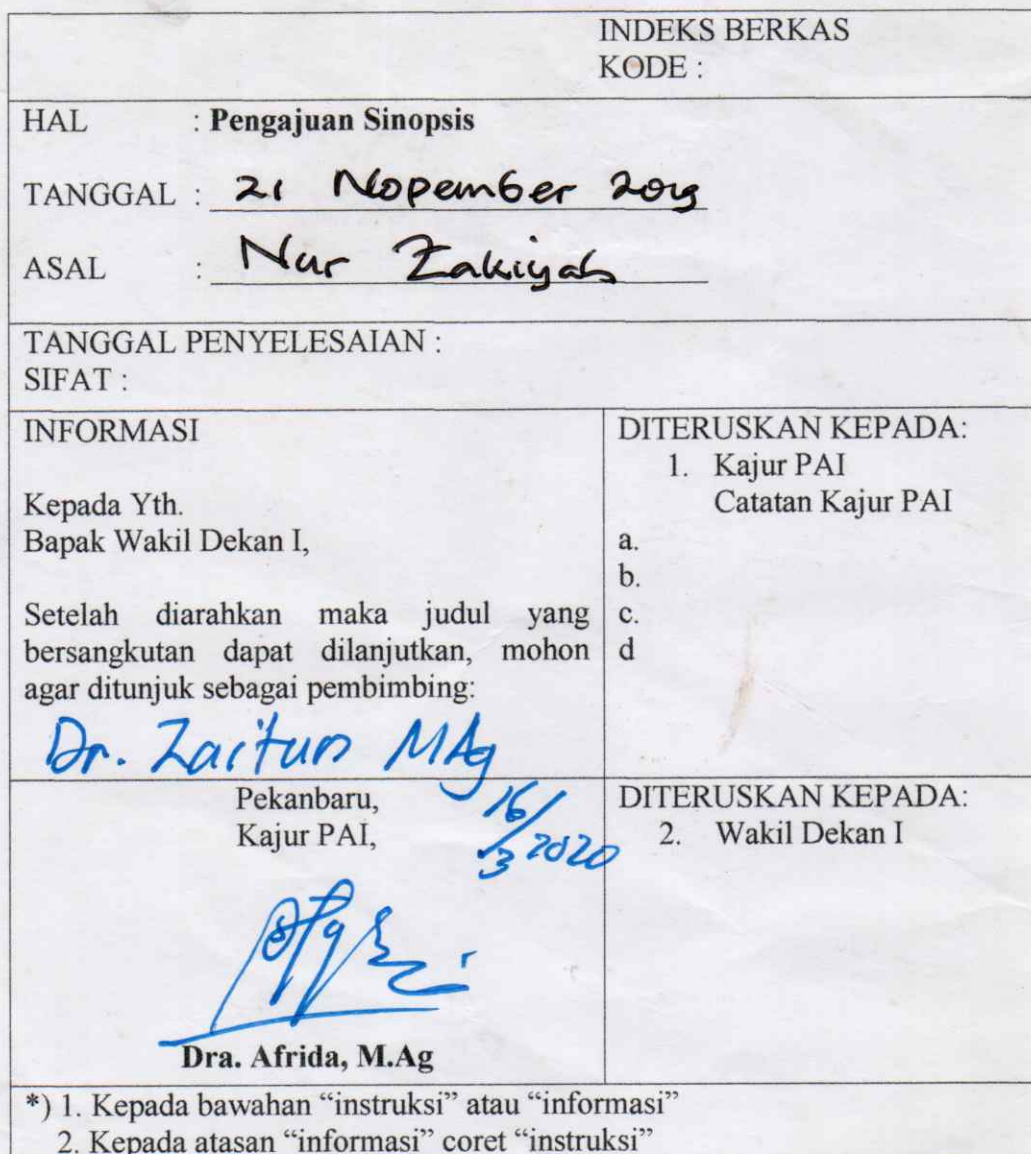 INDEKS BERKAS
KODE :
HAL : Pengajuan Sinopsis
TANGGAL : 21 Nopember 2019
ASAL : Nur Zakiyah
TANGGAL PENYELESAIAN :
SIFAT :
INFORMASI
Kepada Yth.
Bapak Wakil Dekan I,
Setelah diarahkan maka judul yang
bersangkutan dapat dilanjutkan, mohon
agar ditunjuk sebagai pembimbing:
Dr. Zaitun MAg
DITERUSKAN KEPADA:
1. Kajur PAI
Catatan Kajur PAI
a.
b.
c.
d
Pekanbaru, 16/3 2020
Kajur PAI,
Dra. Afrida, M.Ag
DITERUSKAN KEPADA:
2. Wakil Dekan I
*) 1. Kepada bawahan “instruksi” atau “informasi”
2. Kepada atasan “informasi” coret “instruksi”